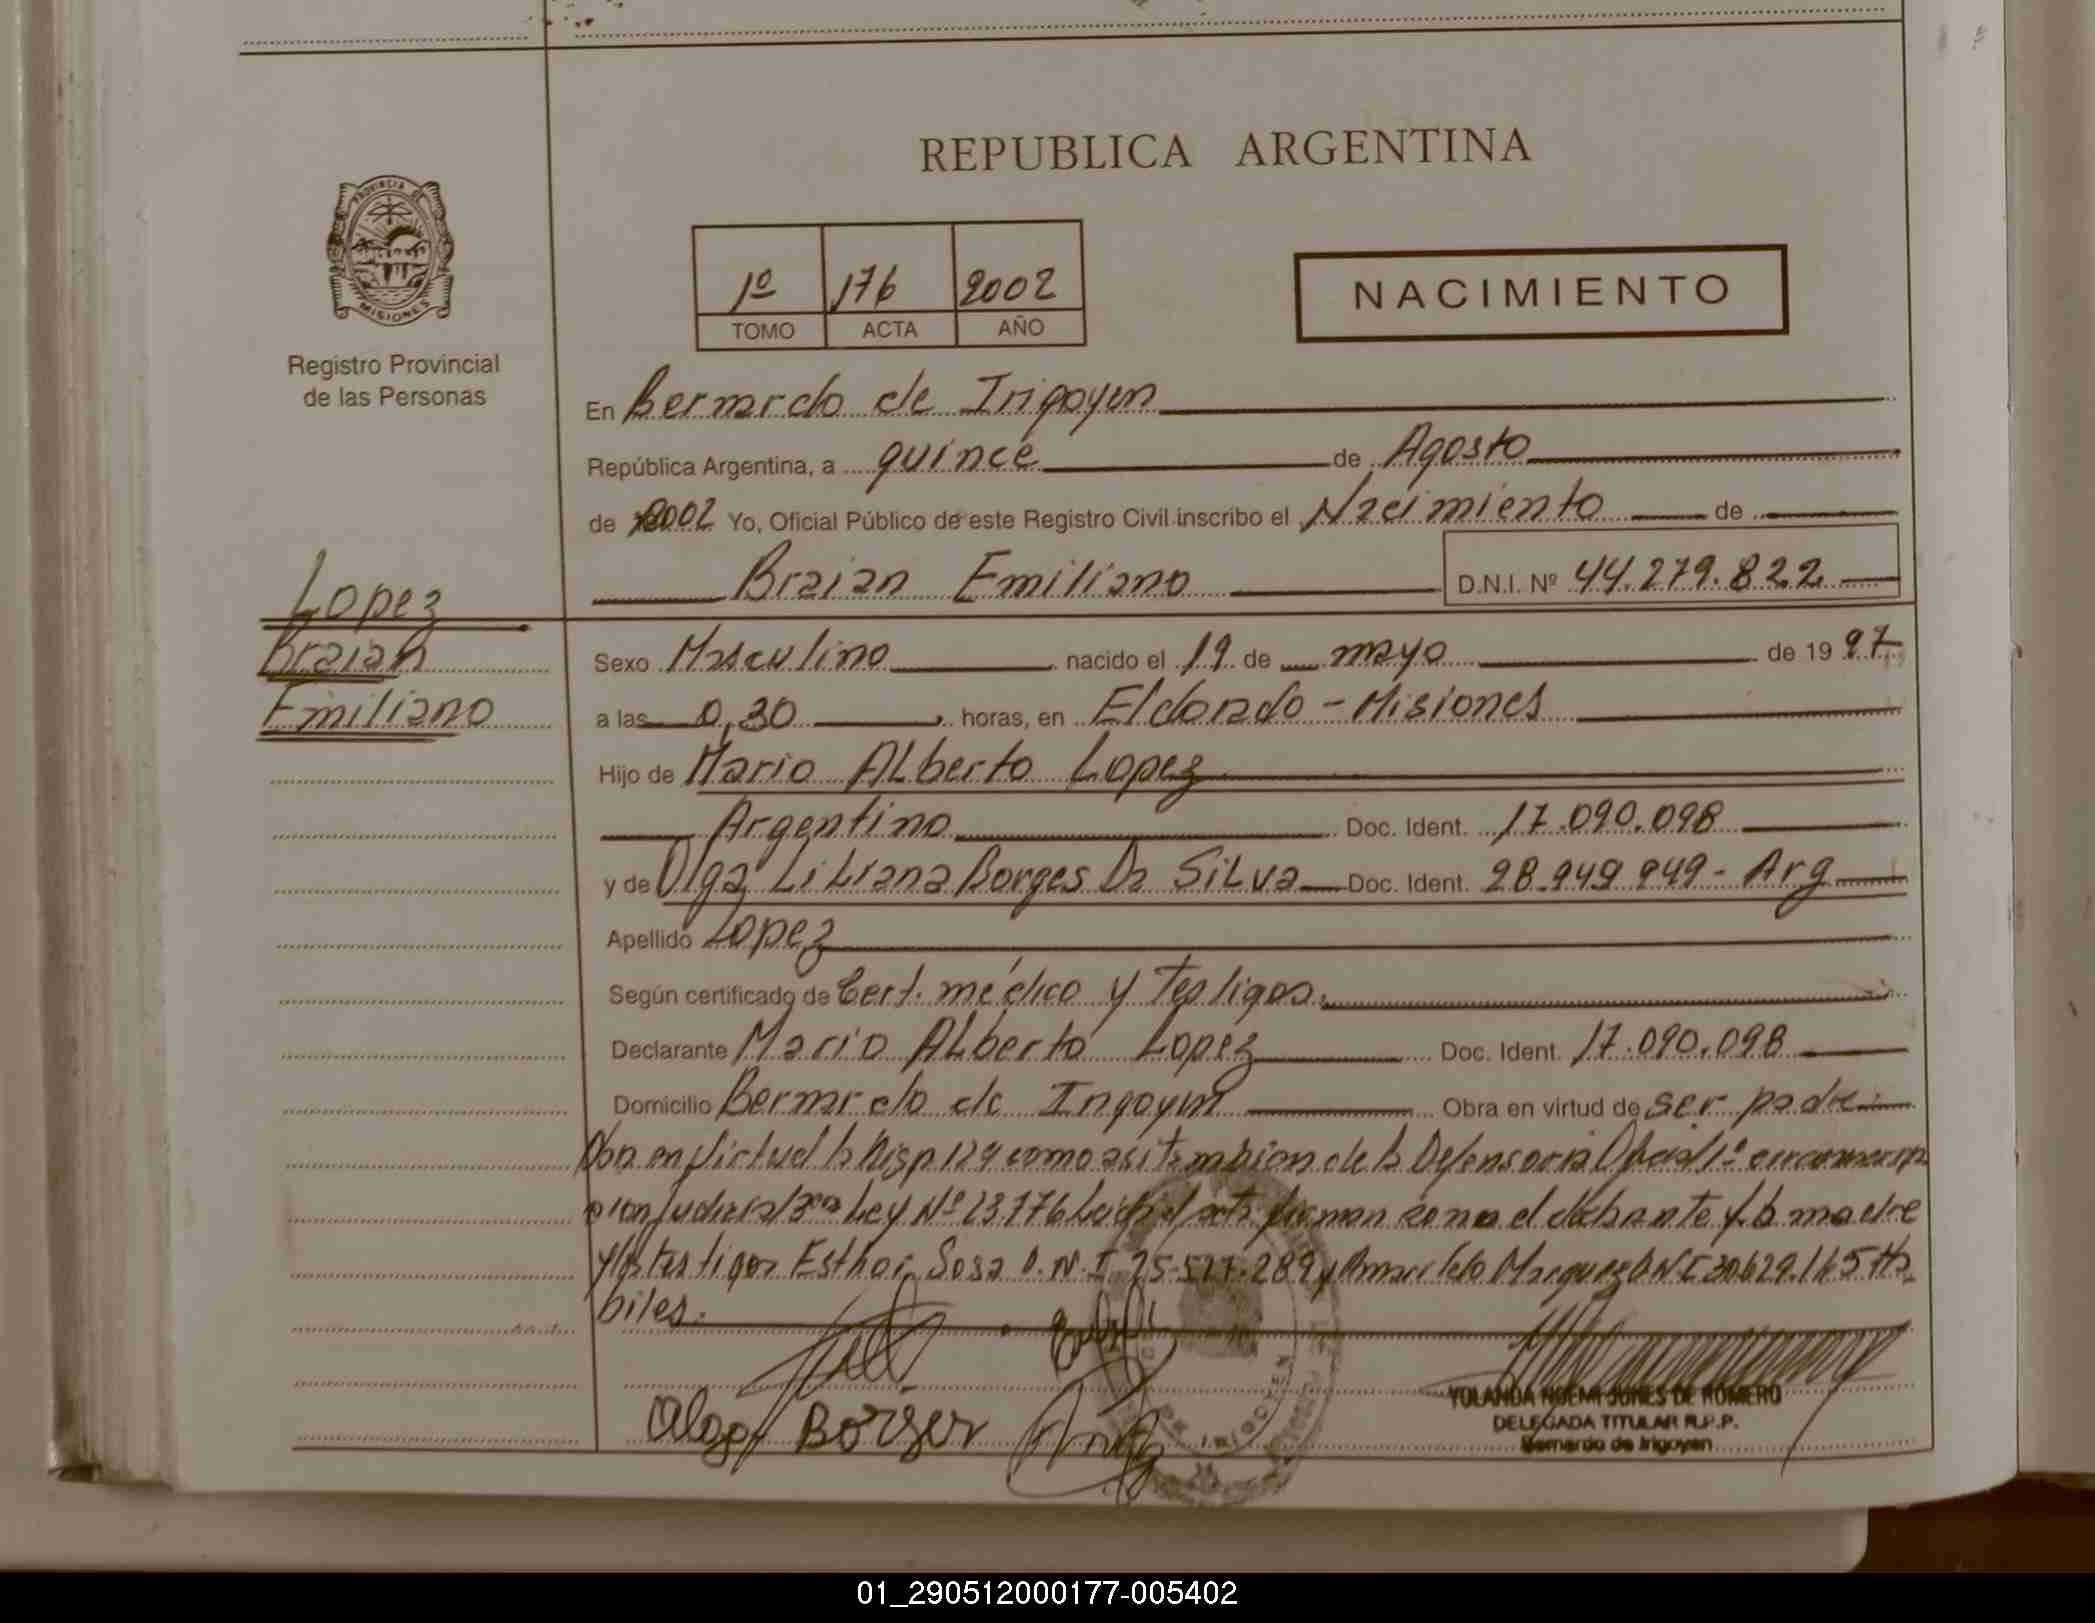 REPUBLICA ARGENTINA
PROVINCIA DE
MISIONES
1º 176 2002
TOMO ACTA AÑO
NACIMIENTO
Registro Provincial
de las Personas
En Bernardo de Irigoyen
República Argentina, a quince de Agosto
de 2002 Yo, Oficial Público de este Registro Civil inscribo el Nacimiento de
Braian Emiliano D.N.I. Nº 44.279.822
Lopez
Braian
Emiliano
Sexo Masculino nacido el 19 de mayo de 19 97
a las 0,30 horas, en Eldorado - Misiones
Hijo de Mario ALberto Lopez
Argentino Doc. Ident. 17.090.098
y de Olga Liliana Borges Da SiLva Doc. Ident. 28.949 949 - Arg
Apellido Lopez
Según certificado de Cert. médico y Testigos.
Declarante Mario ALberto Lopez Doc. Ident. 17.090.098
Domicilio Bernardo de Irigoyen Obra en virtud de ser padre
en virtud la Disp 124 como asi tambien de la Defensoria Oficial 1º
Judicial 3ra Ley Nº 23.776 firman el y la madre
y los testigos Esther Sosa D.N.I 25.527.289 y Marquez DNI 30629.165 Ha
biles.
Olga Borges
YOLANDA NOEMI JONES DE ROMERO
DELEGADA TITULAR R.P.P.
Bernardo de Irigoyen
01_290512000177-005402